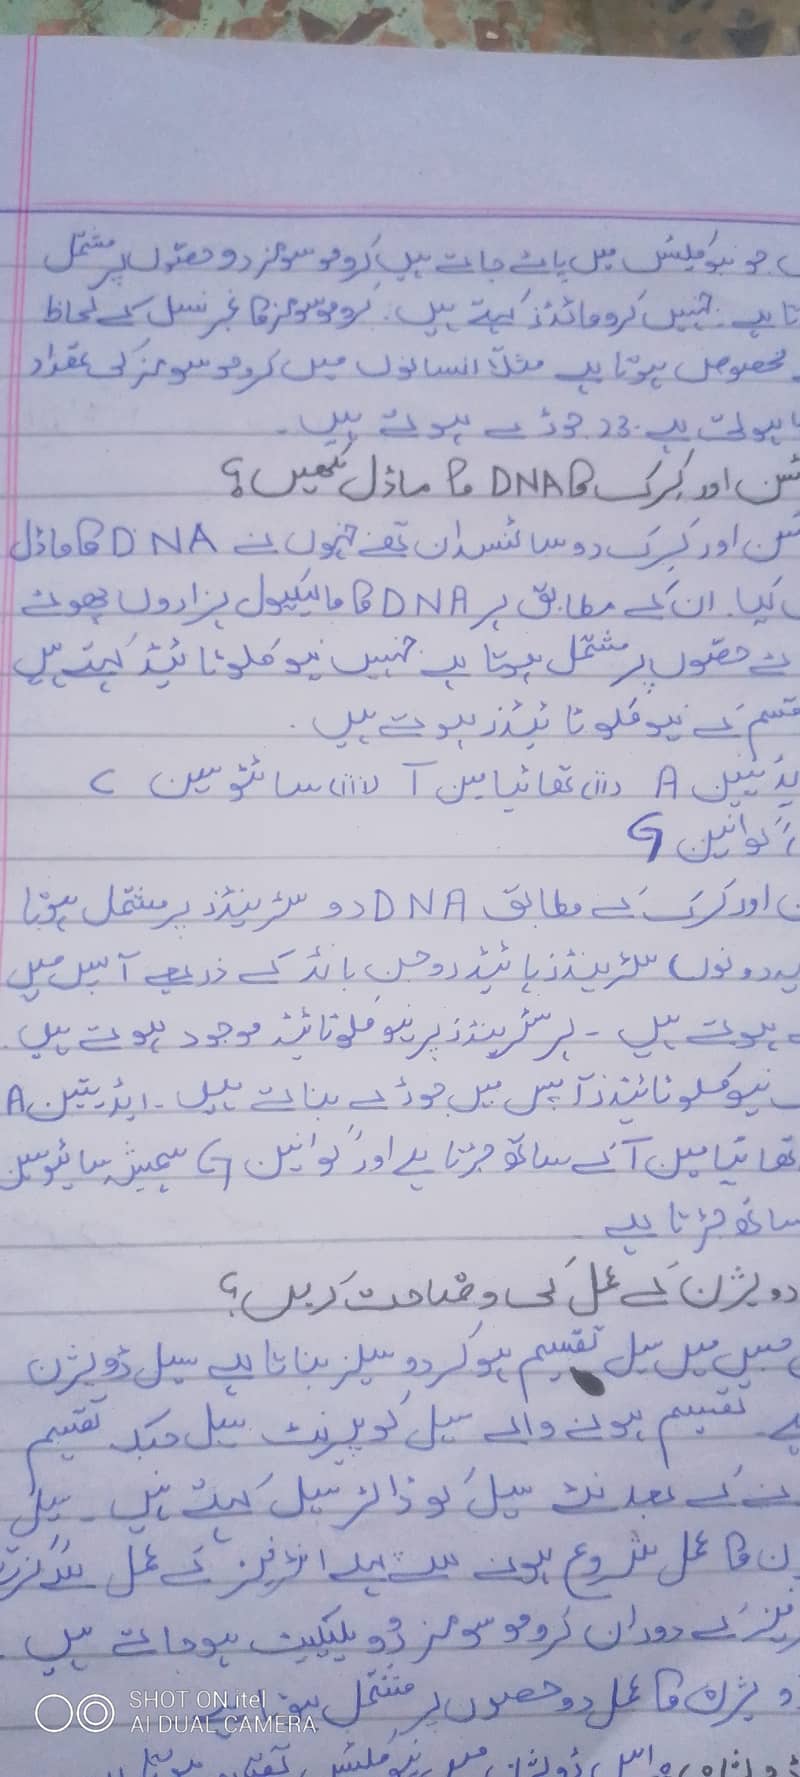 جو نیوکلیئس میں پائے جاتے ہیں کروموسومز دو حصوں پر مشتمل
ہے۔ جنہیں کروماٹڈز کہتے ہیں۔ کروموسومز کا نمبر نسل کے لحاظ
مخصوص ہوتا ہے مثلاً انسانوں میں کروموسومز کی مقدار
ہوتی ہے۔ 23 جوڑے ہوتے ہیں۔
اور کرک کا DNA کا ماڈل لکھیں؟
اور کرک دو سائنسدان تھے جنہوں نے DNA کا ماڈل
کیا۔ ان کے مطابق ہر DNA کا مالیکیول ہزاروں چھوٹے
حصوں پر مشتمل ہوتا ہے جنہیں نیوکلوٹائیڈ کہتے ہیں
قسم کے نیوکلوٹائیڈز ہوتے ہیں۔
A (ii) تھائیامین آ (iii) سائٹوسین C
گوانین G
اور کرک کے مطابق DNA دو سٹرینڈز پر مشتمل ہوتا
دونوں سٹرینڈز ہائیڈروجن بانڈ کے ذریعے آپس میں
ہوتے ہیں۔ ہر سٹرینڈز پر نیوکلوٹائیڈ موجود ہوتے ہیں۔
نیوکلوٹائیڈز آپس میں جوڑے بناتے ہیں۔ ایڈینین A
تھائیامین آ کے ساتھ جڑتا ہے اور گوانین G ہمیشہ سائٹوسین
ساتھ جڑتا ہے
ڈویژن کے عمل کی وضاحت کریں؟
جس میں سیل تقسیم ہو کر دو سیلز بناتا ہے سیل ڈویژن
تقسیم ہونے والے سیل کو پیرنٹ سیل جبکہ تقسیم
کے بعد نئے سیل کو ڈاٹر سیل کہتے ہیں۔ سیل
کا عمل شروع ہونے سے پہلے انٹرفیز کے عمل سے گزرتا
کے دوران کروموسومز ڈوپلیکیٹ ہو جاتے ہیں۔
ڈویژن کا عمل دو حصوں پر مشتمل ہوتا ہے
SHOT ON itel
AI DUAL CAMERA